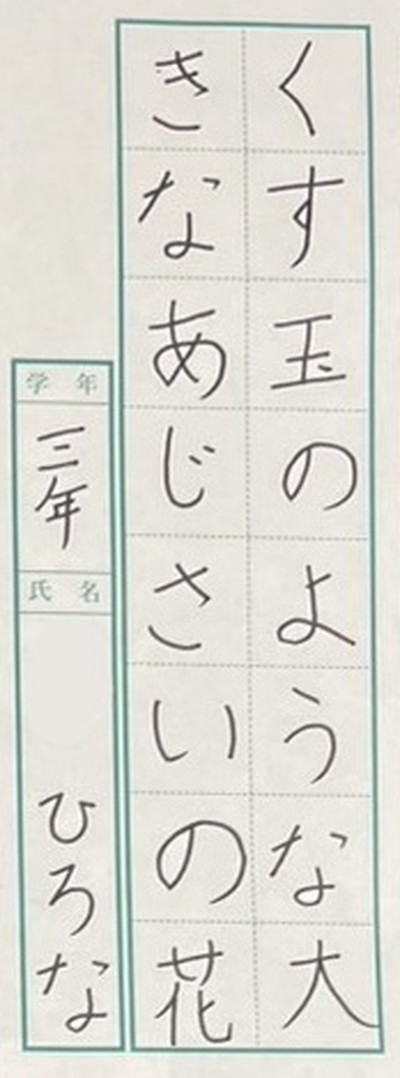 くす玉のような大
きなあじさいの花
学年
三年
氏名
ひろな